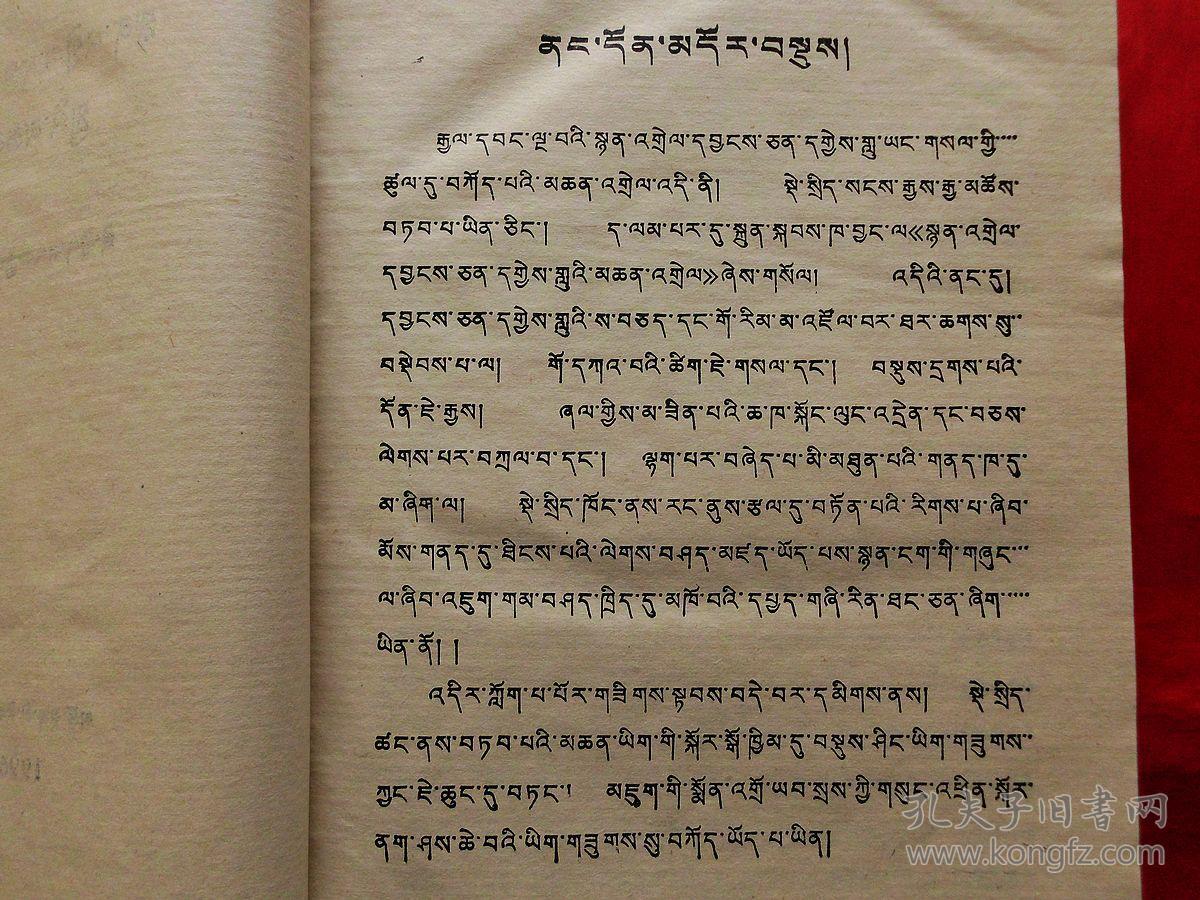 ནང་དོན་མདོར་བསྡུས།
རྒྱལ་དབང་ལྔ་པའི་སྙན་འགྲེལ་དབྱངས་ཅན་དགྱེས་གླུ་ཡང་གསལ་གྱི་
ཚུལ་དུ་བཀོད་པའི་མཆན་འགྲེལ་འདི་ནི། སྡེ་སྲིད་སངས་རྒྱས་རྒྱ་མཚོས་
བཏབ་པ་ཡིན་ཅིང་། ད་ལམ་པར་དུ་སྐྲུན་སྐབས་ཁ་བྱང་ལ《སྙན་འགྲེལ་
དབྱངས་ཅན་དགྱེས་གླུའི་མཆན་འགྲེལ》ཞེས་གསོལ། འདིའི་ནང་དུ།
དབྱངས་ཅན་དགྱེས་གླུའི་ས་བཅད་དང་གོ་རིམ་མ་འཛོལ་བར་ཐར་ཆགས་སུ་
བསྡེབས་པ་ལ། གོ་དཀའ་བའི་ཚིག་ཇེ་གསལ་དང་། བསྡུས་དྲགས་པའི་
དོན་ཇེ་རྒྱས། ཞལ་གྱིས་མ་ཟིན་པའི་ཆ་ཁ་སྐོང་ལུང་འདྲེན་དང་བཅས་
ལེགས་པར་བཀྲལ་བ་དང་། ལྷག་པར་བཞེད་པ་མི་མཐུན་པའི་གནད་ཁ་དུ་
མ་ཞིག་ལ། སྡེ་སྲིད་ཁོང་ནས་རང་ནུས་རྩལ་དུ་བཏོན་པའི་རིགས་པ་ཞིབ་
མོས་གནད་དུ་ཐིངས་པའི་ལེགས་བཤད་མཛད་ཡོད་པས་སྙན་ངག་གི་གཞུང་
ལ་ཞིབ་འཇུག་གམ་བཤད་ཁྲིད་དུ་མཁོ་བའི་དཔྱད་གཞི་རིན་ཐང་ཅན་ཞིག་
ཡིན་ནོ། །
འདིར་ཀློག་པ་པོར་གཟིགས་སྟབས་བདེ་བར་དམིགས་ནས། སྡེ་སྲིད་
ཚང་ནས་བཏབ་པའི་མཆན་ཡིག་གི་སྐོར་སྒོ་ཁྱིམ་དུ་བསྡུས་ཤིང་ཡིག་གཟུགས་
ཀྱང་ཇེ་ཆུང་དུ་བཏང་། མཇུག་གི་སྨོན་འགྲོ་ཡབ་སྲས་ཀྱི་གསུང་འཕྲིན་སྐོར་
ནག་ཤས་ཆེ་བའི་ཡིག་གཟུགས་སུ་བཀོད་ཡོད་པ་ཡིན།
孔夫子旧书网
www.kongfz.com